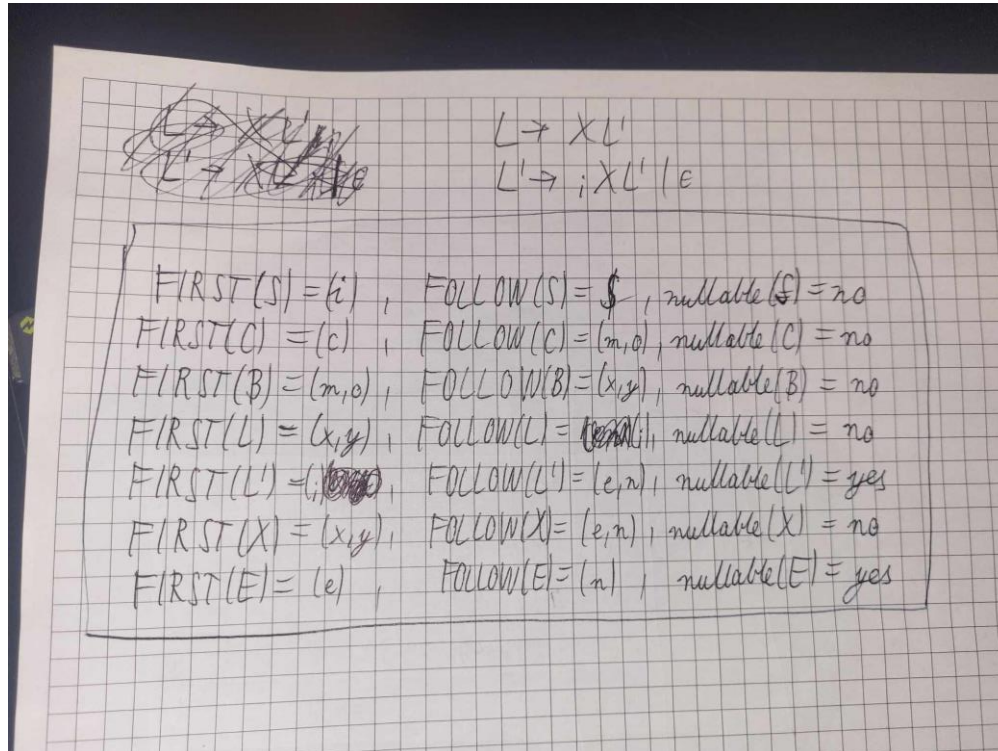 L → XL'
L' → ;XL' | ε
FIRST(S) = (i) , FOLLOW(S) = $ , nullable(S) = no
FIRST(C) = (c) , FOLLOW(C) = (m,o) , nullable(C) = no
FIRST(B) = (m,o) , FOLLOW(B) = (x,y) , nullable(B) = no
FIRST(L) = (x,y) , FOLLOW(L) = , nullable(L) = no
FIRST(L') = (; , FOLLOW(L') = (e,n) , nullable(L') = yes
FIRST(X) = (x,y) , FOLLOW(X) = (e,n) , nullable(X) = no
FIRST(E) = (e) , FOLLOW(E) = (n) , nullable(E) = yes